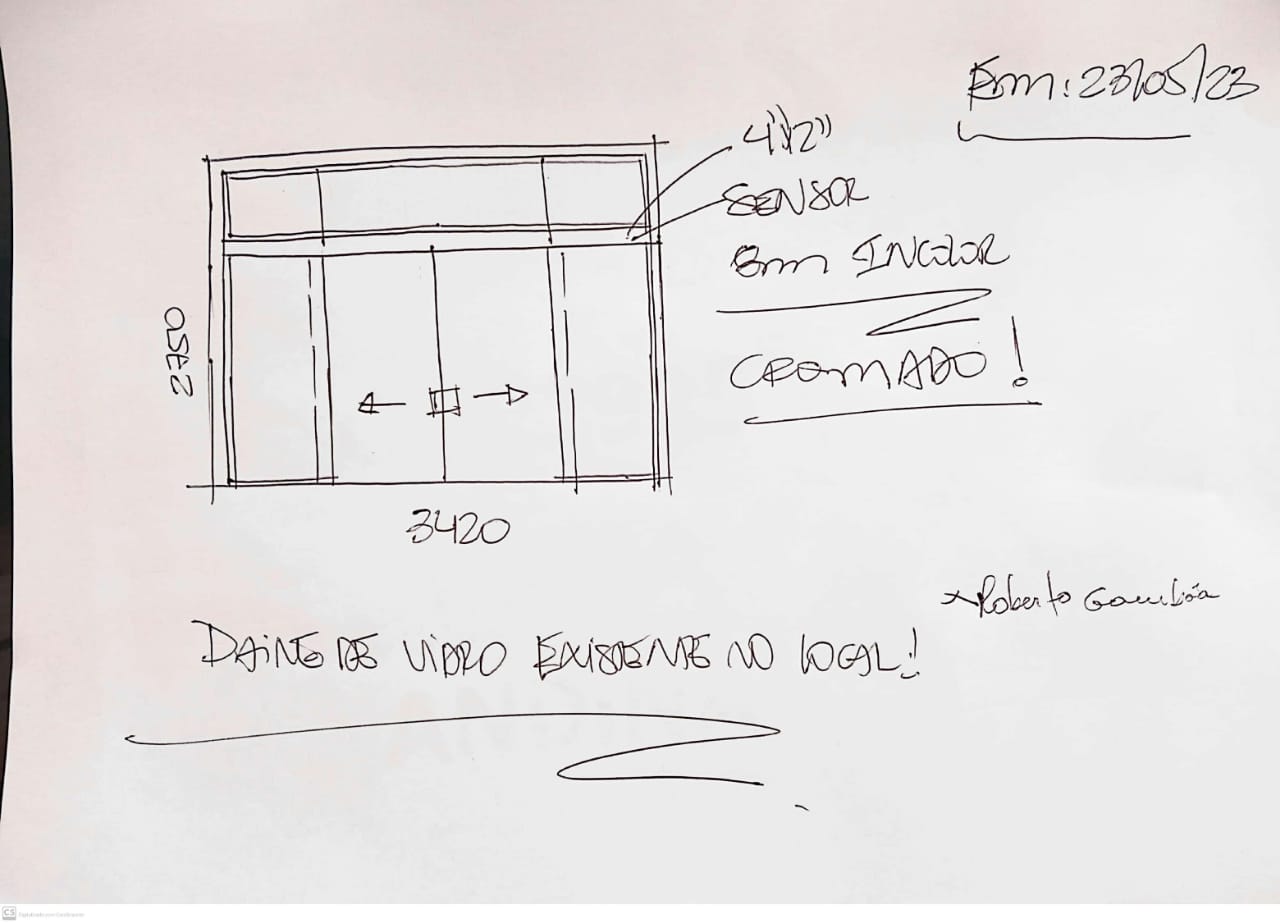 Em: 23/05/23
4 1/2"
SENSOR
8mm INCOLOR
CROMADO!
2750
3420
*Roberto Gambôa
DE VIDRO EXISTENTE NO LOCAL!
CS Digitalizado com CamScanner